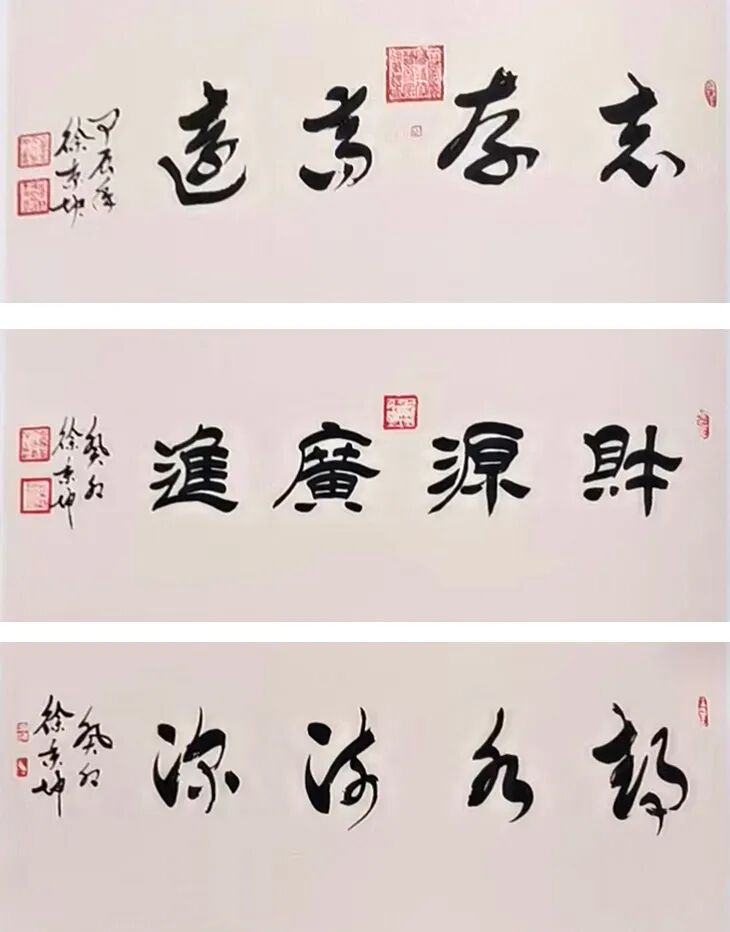 志存高遠
甲辰年
徐京坤
財源廣進
癸卯
徐京坤
静水流深
癸卯
徐京坤